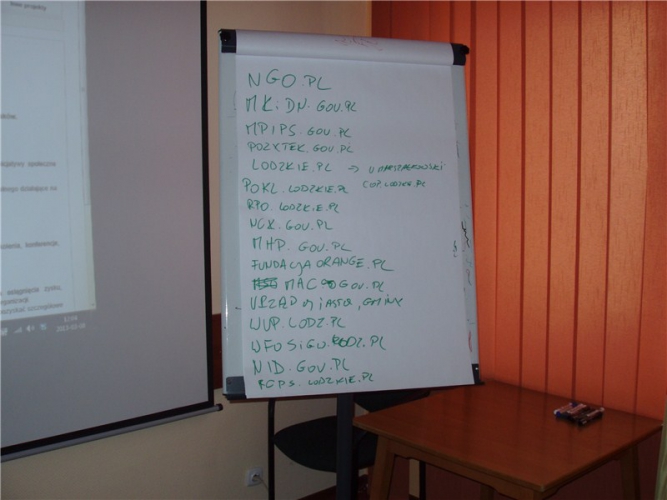 NGO.PL
MKiDN.GOV.PL
MPIPS.GOV.PL
POZYTEK.GOV.PL
LODZKIE.PL → U MARSZAŁKOWSKI
POKL.LODZKIE.PL COP.LODZKIE.PL
RPO.LODZKIE.PL
NCK.GOV.PL
MHP.GOV.PL
FUNDACJA ORANGE.PL
MAC.GOV.PL
URZĄD MIASTA, GMINY
WUP.LODZ.PL
WFOSIGW.LODZ.PL
NID.GOV.PL
RCPS.LODZKIE.PL
konferencje,
zysku,